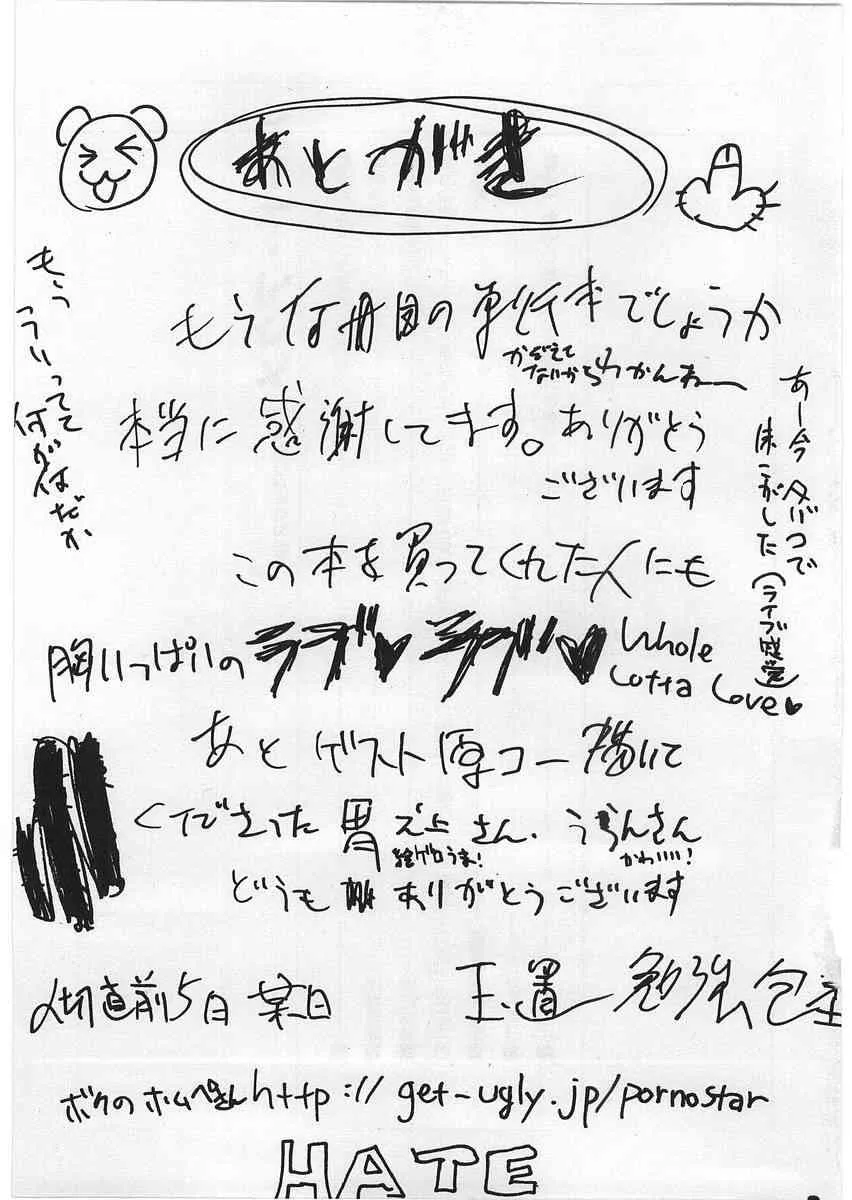 あとがき
もう何冊目の単行本でしょうか
かぞえて
ないからわかんねー
本当に感謝してます。ありがとう
ございます
この本を買ってくれた人にも
胸いっぱいの ラブ♥ ラブ♥ Whole
Lotta Love♥
あとゲスト原コー描いて
くださった 胃之上さん. うらんさん
絵ゲロうま!
かわいい!
どうも ありがとうございます
〆切直前5日 某日
玉置勉強
ボクのホムペさん http://get-ugly.jp/pornostar
HATE
もう
こういってて
何が何だか
あー今タバコで
床こがした
(ライブ感覚)